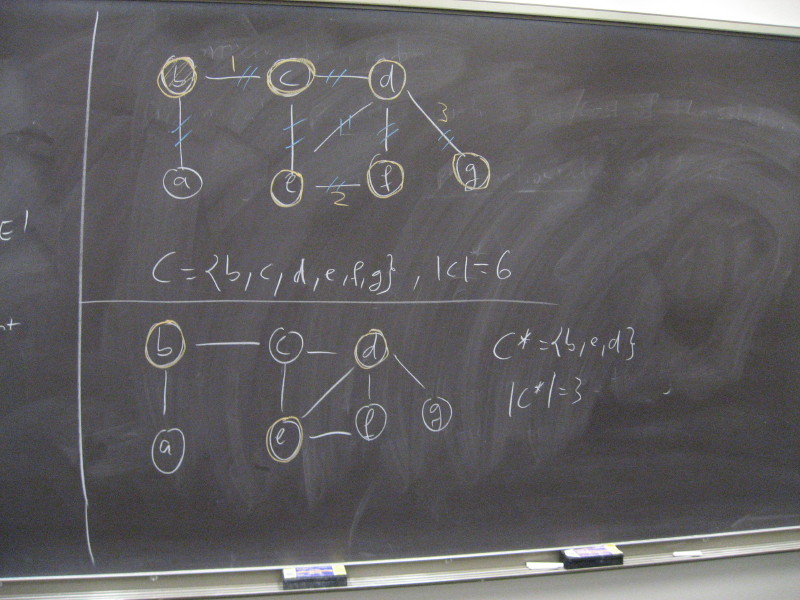 b 1 c d
3
a e 2 f g
E'
C = {b, c, d, e, f, g}, |C| = 6
b c d
C* = {b, e, d}
|C*| = 3
a e f g